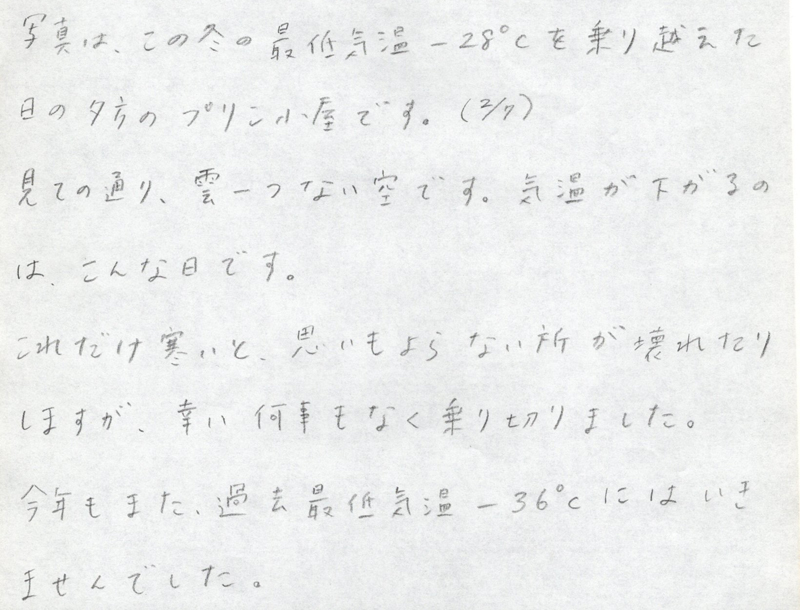 写真は、この冬の最低気温－28℃を乗り越えた
日の夕方のプリン小屋です。(2/7)
見ての通り、雲一つない空です。気温が下がるの
は、こんな日です。
これだけ寒いと、思いもよらない所が壊れたり
しますが、幸い何事もなく乗り切りました。
今年もまた、過去最低気温－36℃にはいき
ませんでした。